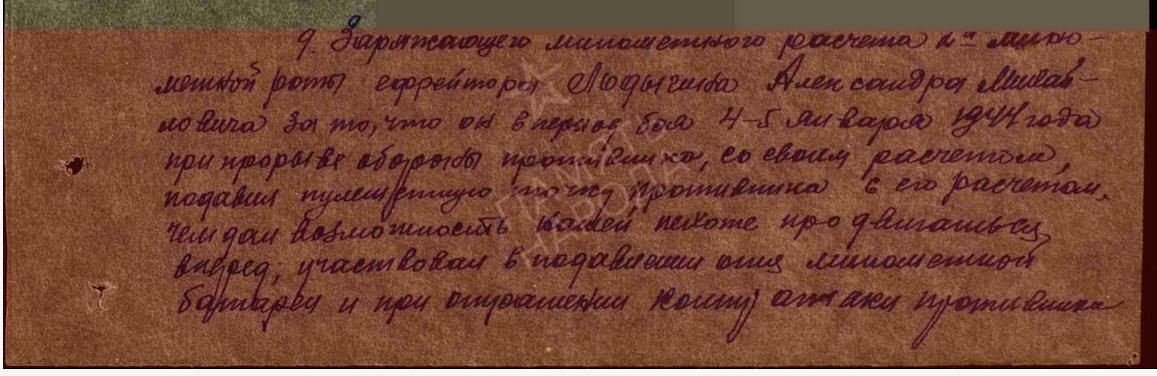 9. Заряжающего минометного расчета 2й мино-
метной роты ефрейтора Александра Михай-
ловича за то, что он в период боя 4-5 января 1944 года
при прорыве обороны противника, со своим расчетом,
подавил пулеметную точку противника с его расчетом,
чем дал возможность нашей пехоте продвигаться
вперед, участвовал в подавлении огня минометной
батареи и при отражении контратаки противника
ПАМЯТЬ
НАРОДА